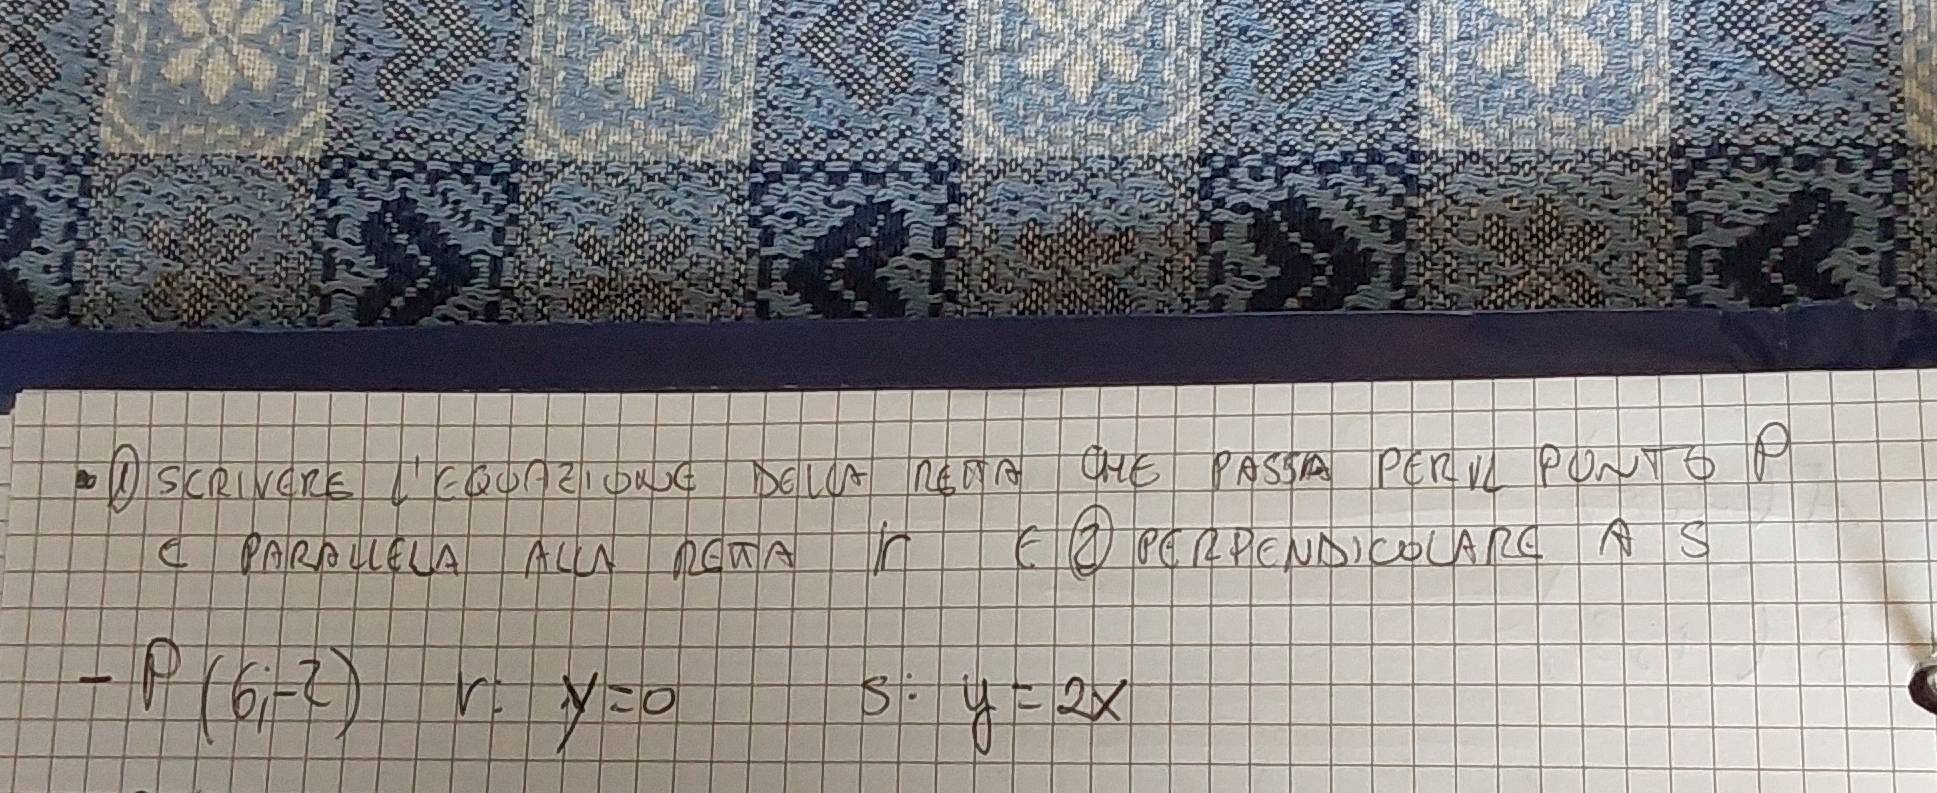 ① SCRIVERE L'EQUAZIONE DELLA RETTA CHE PASSA PER IL PUNTO P
E PARALLELA ALLA RETTA r E ② PERPENDICOLARE A S
- P (6;-2) r: y=0 s: y=2x